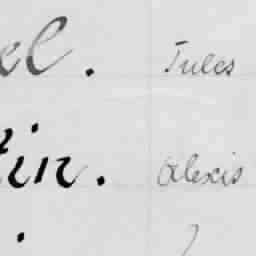 el. Jules
tin. Alexis
.